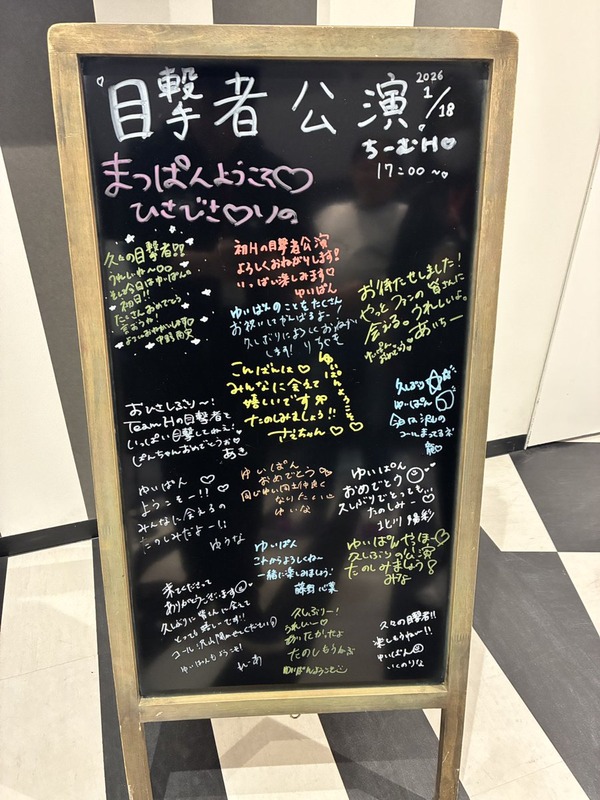 目撃者 公 演 2026 1/18
ちーむH♡
17:00 ~♡
まっぱんようこそ♡
ひさびさ♡りの
久々の目撃者!!
うれしいね〜
そして今日はゆいぱんの
初日!!
たくさんおめでとう
言おうね!
よろしくおねがいします
初Hの目撃者公演
よろしくおねがいします!
いっぱい楽しみます♡
ゆいぱん
ゆいぱんのこともたくさん
お祝いしてがんばるよー
久しぶりによろしくおねがい
します!
お待たせしました!
やっとファンの皆さんに
会える。うれしいよ。
ゆいぱん
おめでとう♡
あいちー
こんばんは♡
みんなに会えて
嬉しいです
たのしみましょう!!
さえちゃん♡
ゆいぱんようこそ♡♡
久しぶり
ゆいぱん
今日沢山の
コールまってるネ
おひさしぶり〜!
TeamHの目撃者を
いっぱい目撃してねえ!
ぱんちゃんおめでとう
あき
ゆいぱん ♡
ようこそー!!♡
みんなに会えるの
たのしみだよー!!
ゆうな
ゆいぱん
おめでとう
同じゆい同士仲良く
なりたいな
ゆいな
ゆいぱん
おめでとう
久しぶりでとっても...
たのしみー♡
北川 陽彩
ゆいぱん
これからよろしくね〜
一緒に楽しみましょう!
ゆいぱんやっほー♡
久しぶりの公演
たのしみましょう!
みな
来てくださって
ありがとうございます
久しぶりに皆さんに会えて
とっても嬉しいです!!
コール沢山聞かせてください
ゆいぱんもようこそ!
久しぶりー!
うれしいー♡
あいたかったよ
たのしもうねっ
ゆいぱんようこそ
久々の目撃者!!
楽しもうねー!!
ゆいぱん
いくのりな